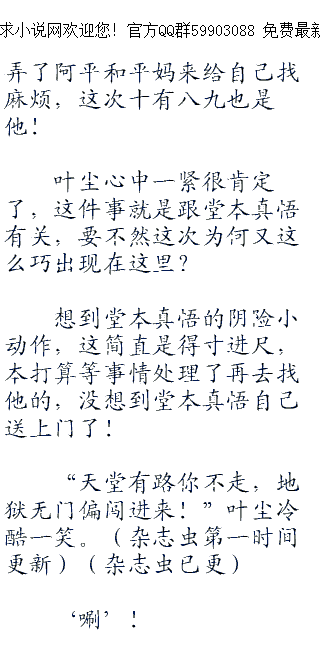 求小说网欢迎您！官方QQ群59903088 免费最新
弄了阿平和平妈来给自己找
麻烦，这次十有八九也是
他！
叶尘心中一紧很肯定
了，这件事就是跟堂本真悟
有关，要不然这次为何又这
么巧出现在这里？
想到堂本真悟的阴险小
动作，这简直是得寸进尺，
本打算等事情处理了再去找
他的，没想到堂本真悟自己
送上门了！
“天堂有路你不走，地
狱无门偏闯进来！”叶尘冷
酷一笑。（杂志虫第一时间
更新）（杂志虫已更）
‘唰’！